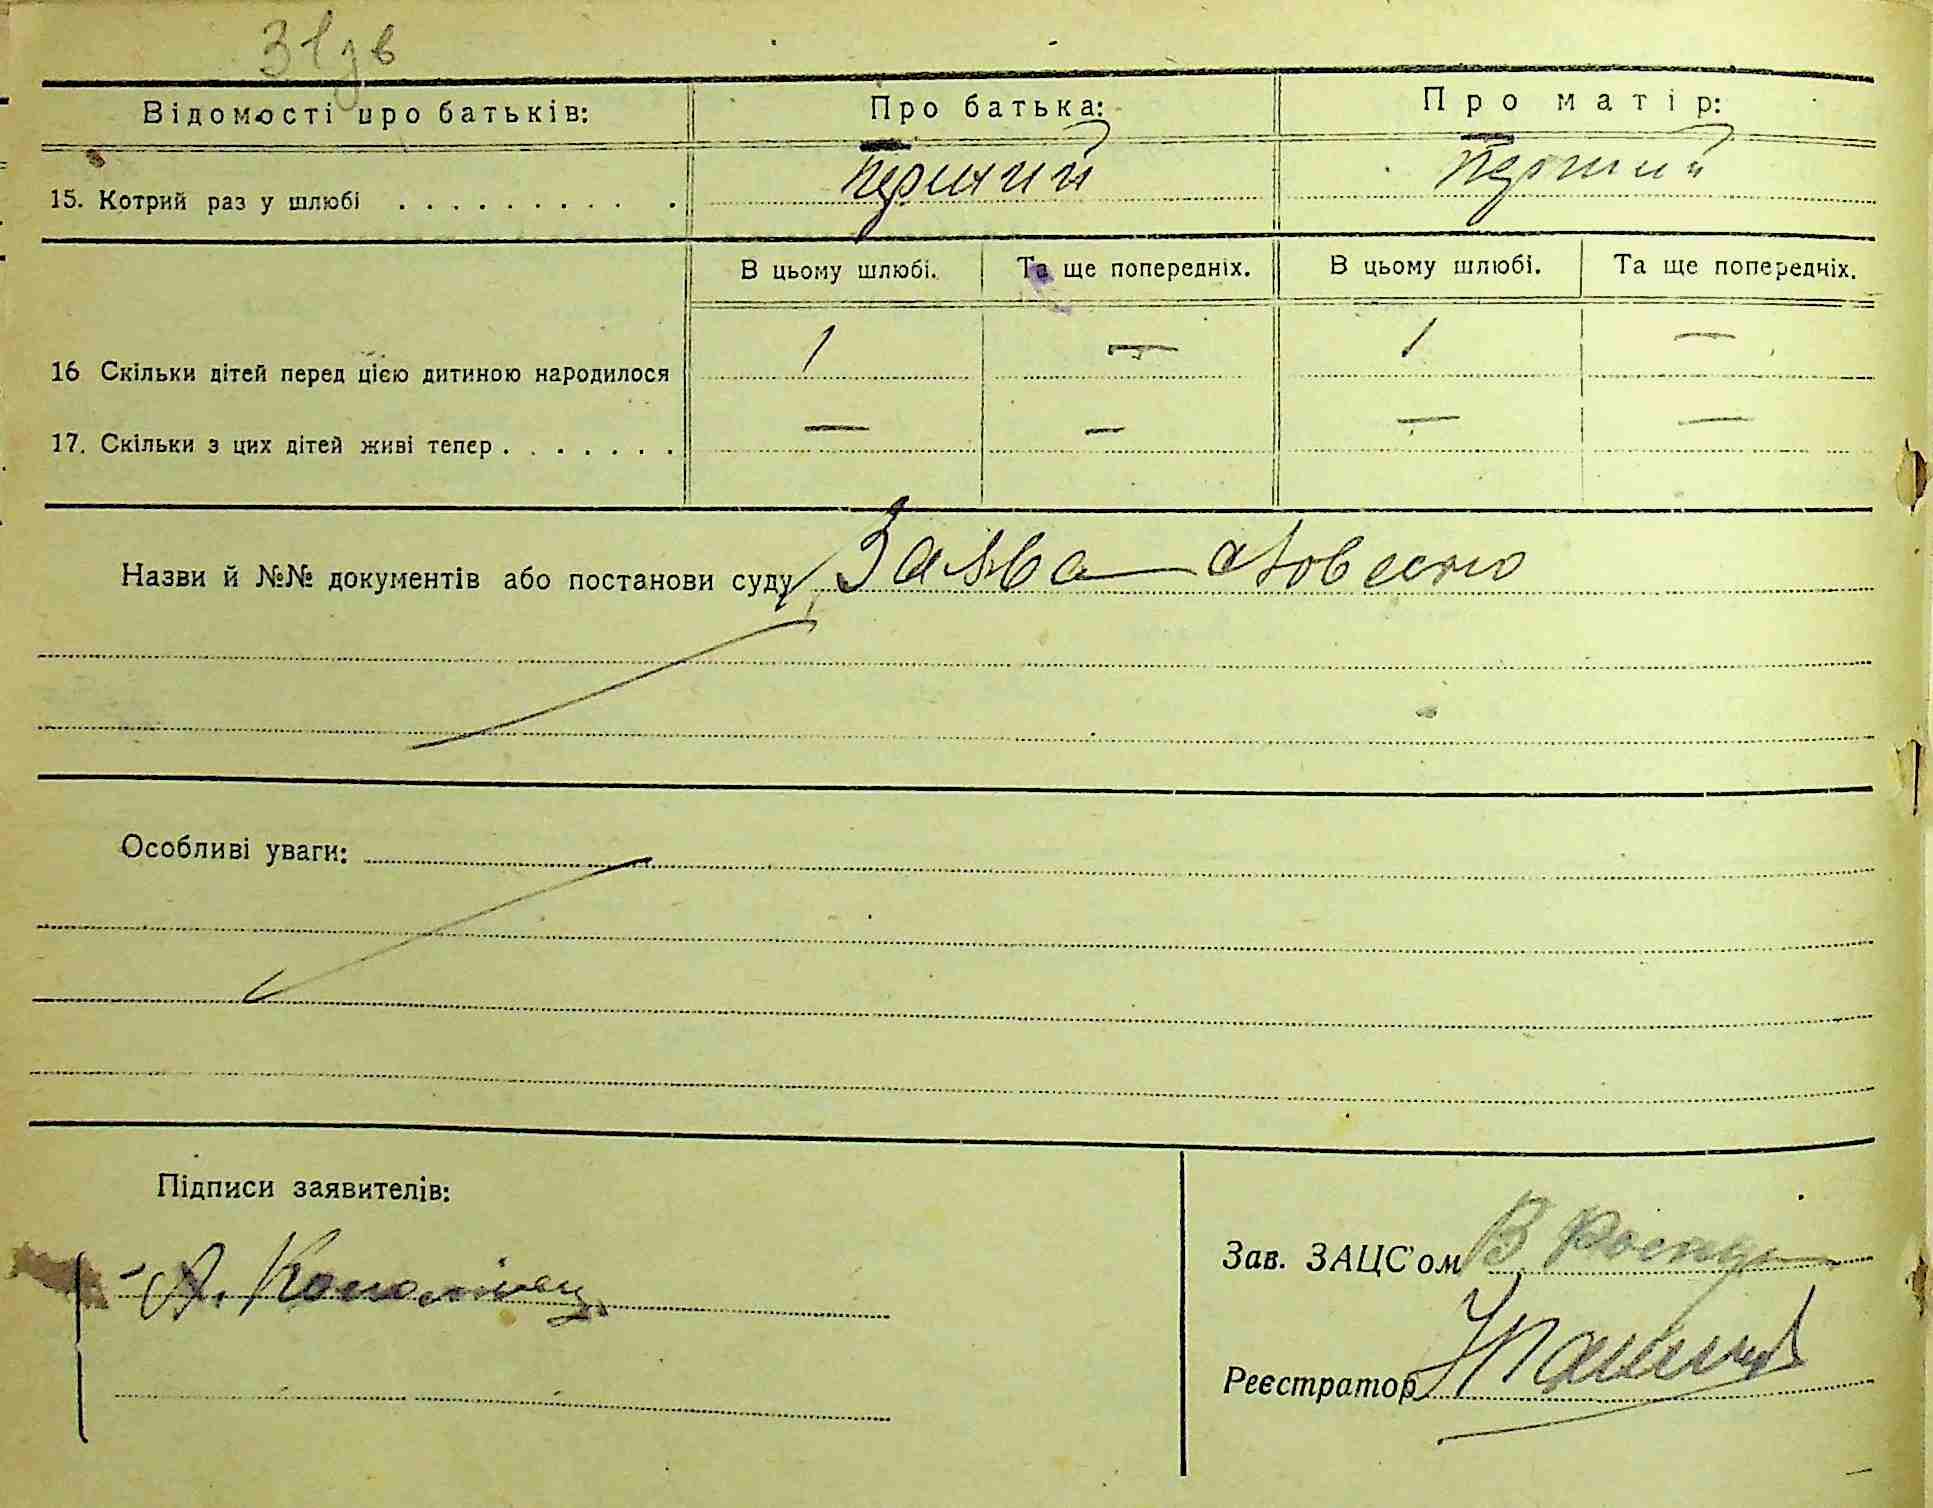 31 зв
Відомості про батьків: Про батька: Про матір:
15. Котрий раз у шлюбі . . . . . . . . . . перший перший
В цьому шлюбі. Та ще попередніх. В цьому шлюбі. Та ще попередніх.
16 Скільки дітей перед цією дитиною народилося 1 — 1 —
17. Скільки з цих дітей живі тепер . . . . . . . — — — —
Назви й №№ документів або постанови суду Заява словесно
Особливі уваги:
Підписи заявителів:
Зав. ЗАЦС'ом В
А.
Реєстратор